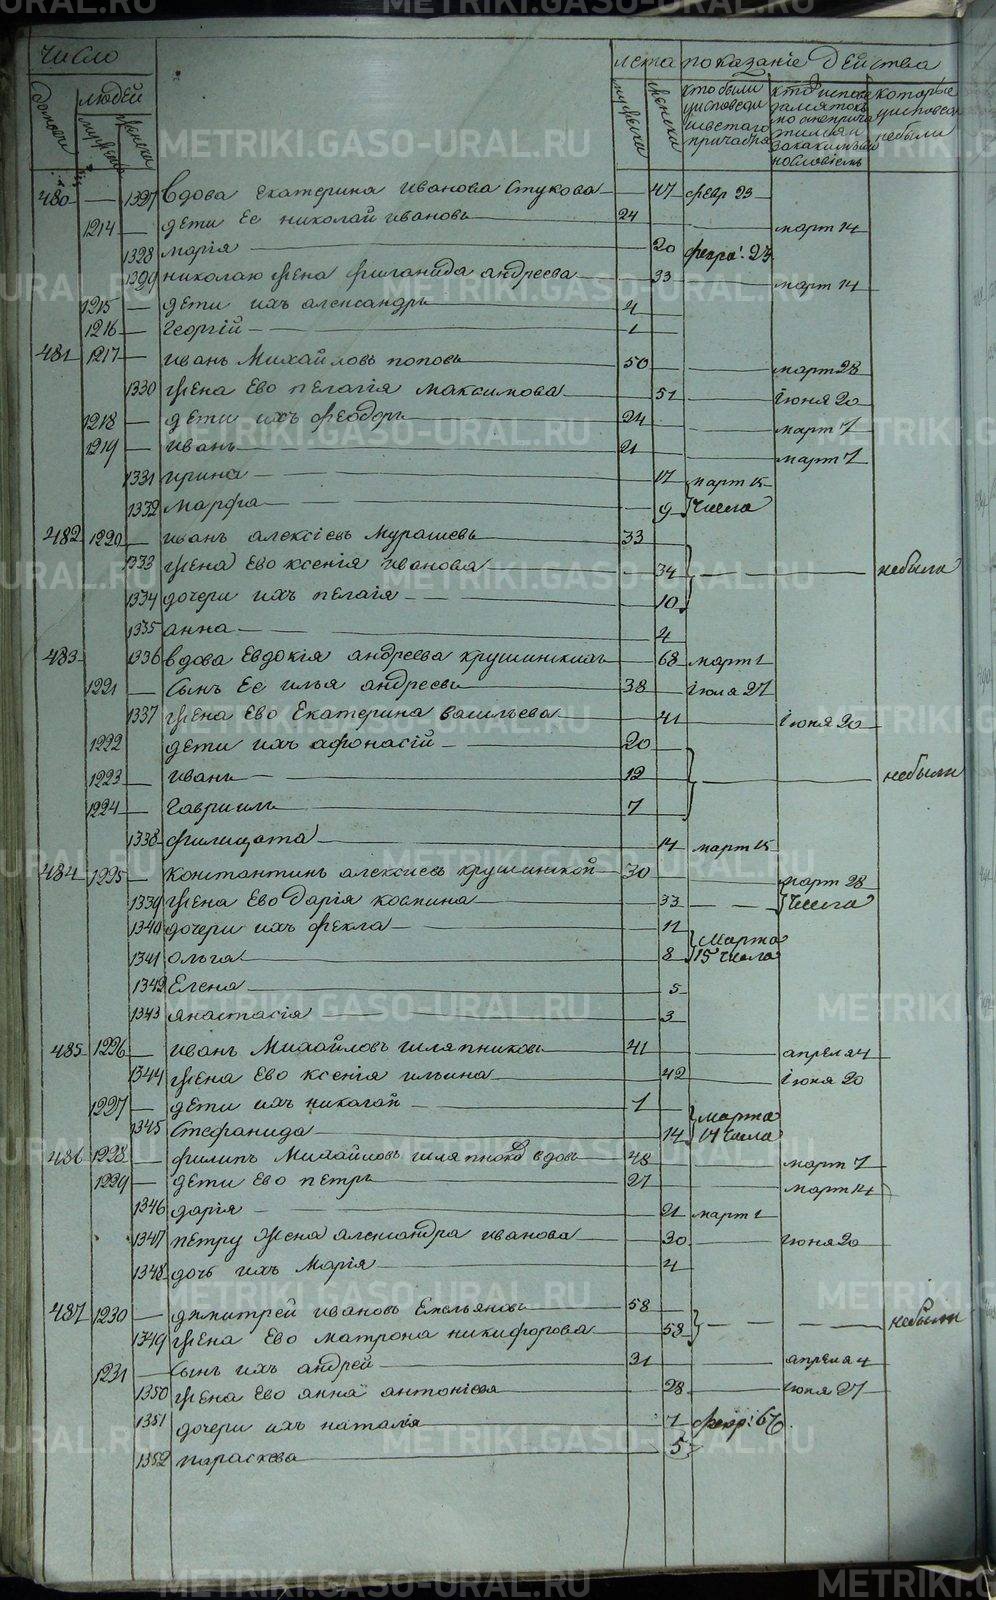 число лета показаніе действа
домовъ людей мужеска женска мужеска женска кто были у исповеди и святаго причастия кто исповедался токмо а не причастился и за какимъ винословіемъ которые у исповеди не были
480 — 1327 вдова екатерина иванова стукова — 47 февр 23
1214 — дети ее николай ивановъ 24 — март 14
1328 марія — 20 февра: 23
1329 николаю жена фиганида андреева 33 — март 14
1215 — дети ихъ александръ 4
1216 — георгій — 1
481 1217 — иванъ михайловъ поповъ 50 — март 28
1330 жена ево пелагія максимова 51 — іюня 20
1218 — дети ихъ феодоръ 24 — март 7
1219 — иванъ 21 — март 7
1331 ирина — 17 март 15
1332 марфа — 9 числа
482 1220 — иванъ алексіевъ мурашевъ 33
1333 жена ево ксенія иванова 34 — небыли
1334 дочери ихъ пелагія — 10
1335 анна — 4
483 1336 вдова евдокія андреева крушинскихъ — 68 март 1
1221 — сынъ ее илья андреевъ 38 — іюля 27
1337 жена ево екатерина васильева 41 — іюня 20
1222 дети ихъ афонасій — 20
1223 — иванъ — 12 — небыли
1224 — гавриилъ 7
1338 филицата 14 март 15
484 1225 — константинъ алексіевъ крушинской 30 — март 28
1339 жена ево дарія космина 33 — числа
1340 дочери ихъ фекла — 11 марта
1341 ольга 8 15 числа
1342 елена 5
1343 анастасія 3
485 1226 — иванъ михайловъ шляпниковъ 41 — апреля 4
1344 жена ево ксенія ильина 42 — іюня 20
1227 — дети ихъ николай — 1 марта
1345 стефанида 14 14 числа
486 1228 — филипъ михайловъ шляпников вдовъ 48 — март 7
1229 — дети ево петръ 27 — март 14
1346 дарія — 21 март 1
1347 петру жена александра иванова 30 — іюня 20
1348 дочь ихъ марія 4
487 1230 — димитрей ивановъ емельяновъ 58 — небыли
1349 жена ево матрона никифорова 58
1231 — сынъ ихъ андрей 31 — апреля 4
1350 жена ево анна антоніева 28 — іюня 27
1351 дочери ихъ наталія 7 февр:
1352 параскева 5